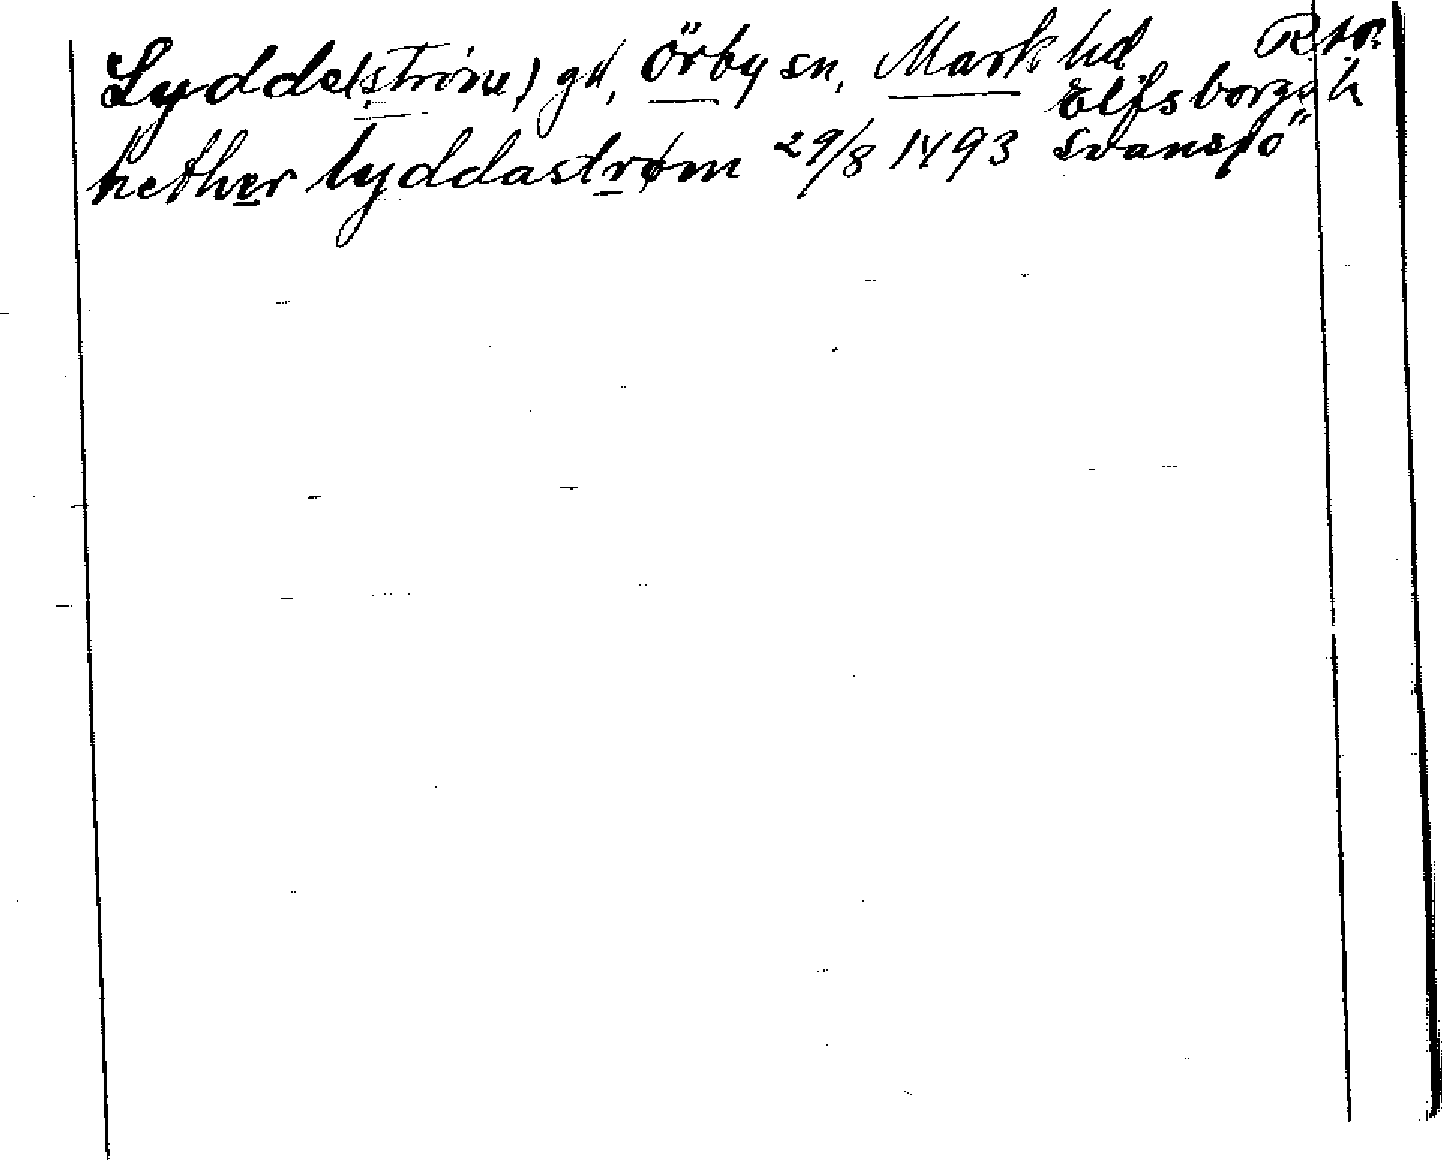 Lydde(ström) gd, Örby sn, Mark hd
Elfsborgs l.
nether lyddastrøm 29/8 1493 Svansjö